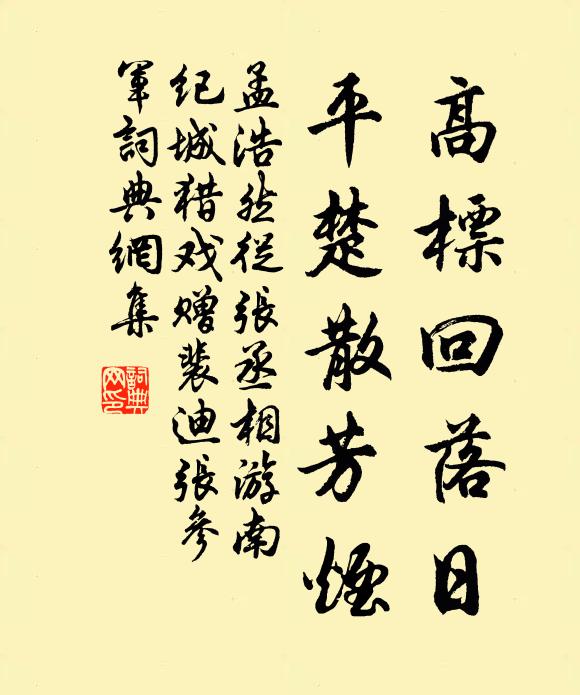 高標回落日
平楚散芳煙
孟浩然從張丞相游南
纪城猎戏赠裴迪張參
軍詞典網集
詞典
网印